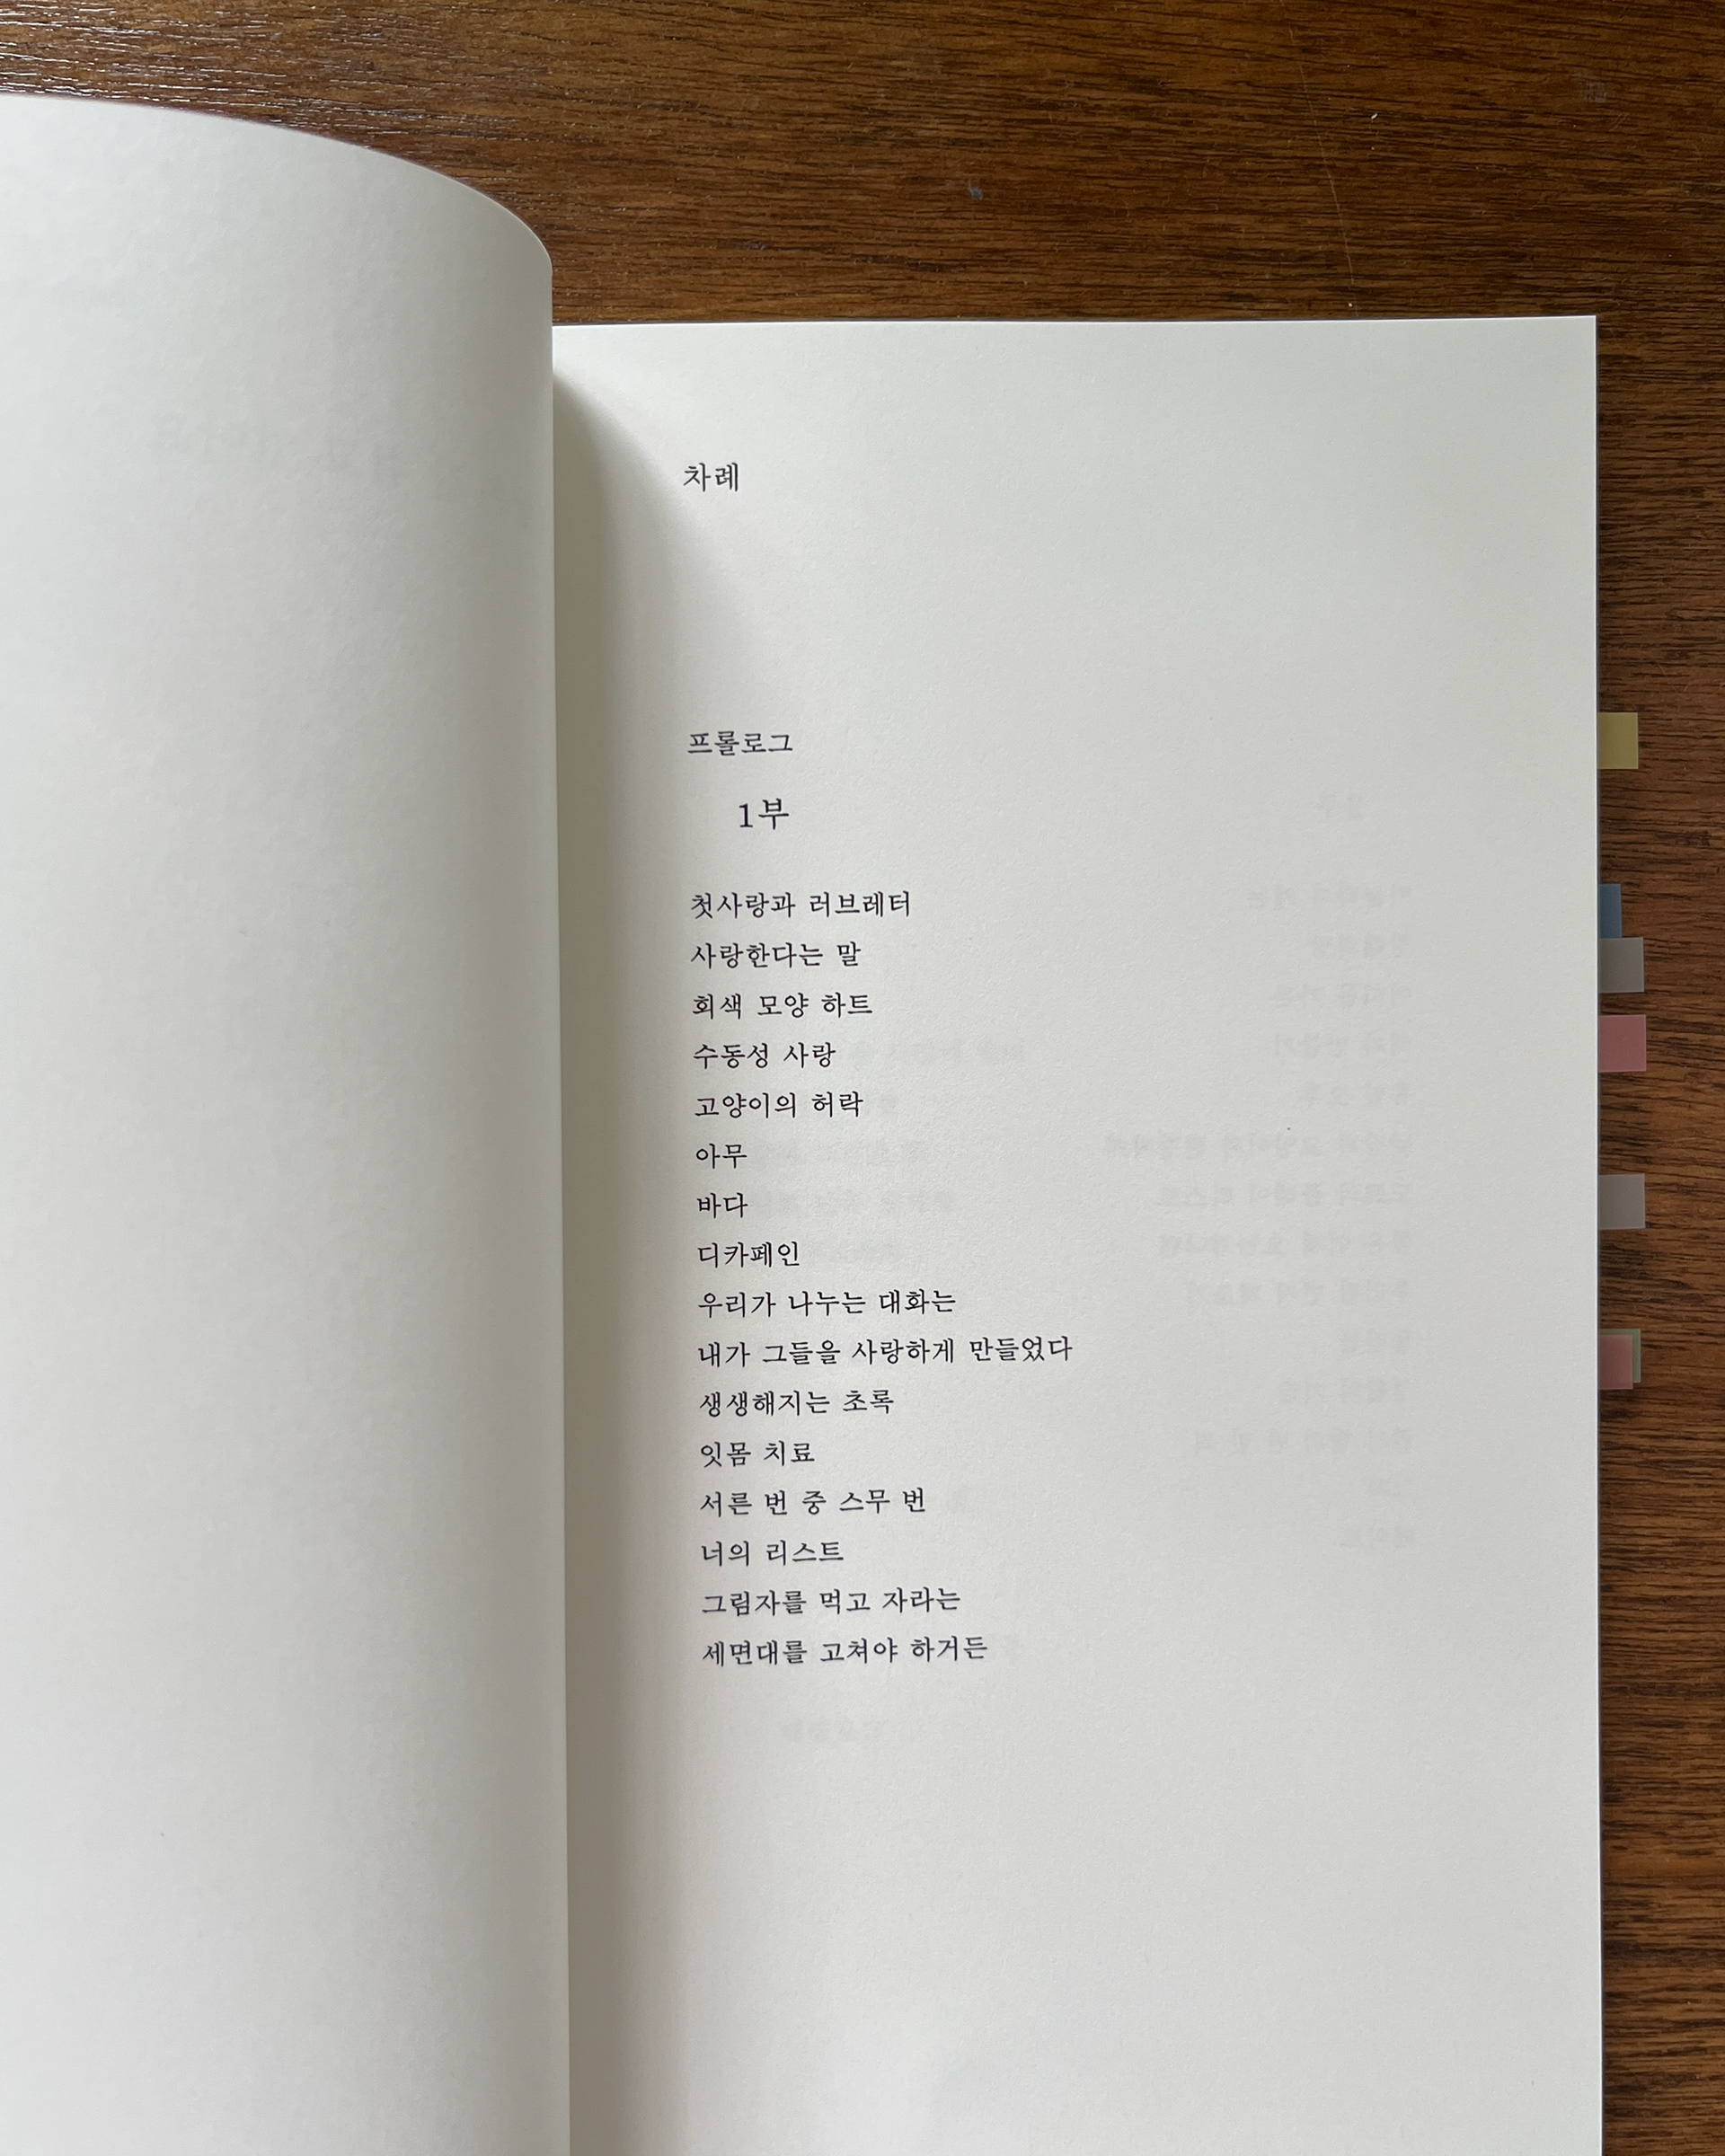 차례
프롤로그
1부
첫사랑과 러브레터
사랑한다는 말
회색 모양 하트
수동성 사랑
고양이의 허락
아무
바다
디카페인
우리가 나누는 대화는
내가 그들을 사랑하게 만들었다
생생해지는 초록
잇몸 치료
서른 번 중 스무 번
너의 리스트
그림자를 먹고 자라는
세면대를 고쳐야 하거든